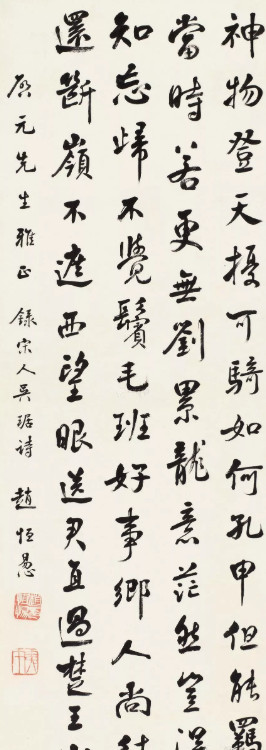 神物登天擾可騎如何孔甲但能羈
當時若更無劉累龍意茫然豈得
知忘歸不覺鬢毛班好事鄉人尚往
還斷嶺不遮西望眼送君直過楚王山
啟元先生雅正 錄宋人吳琚詩 趙恒惖